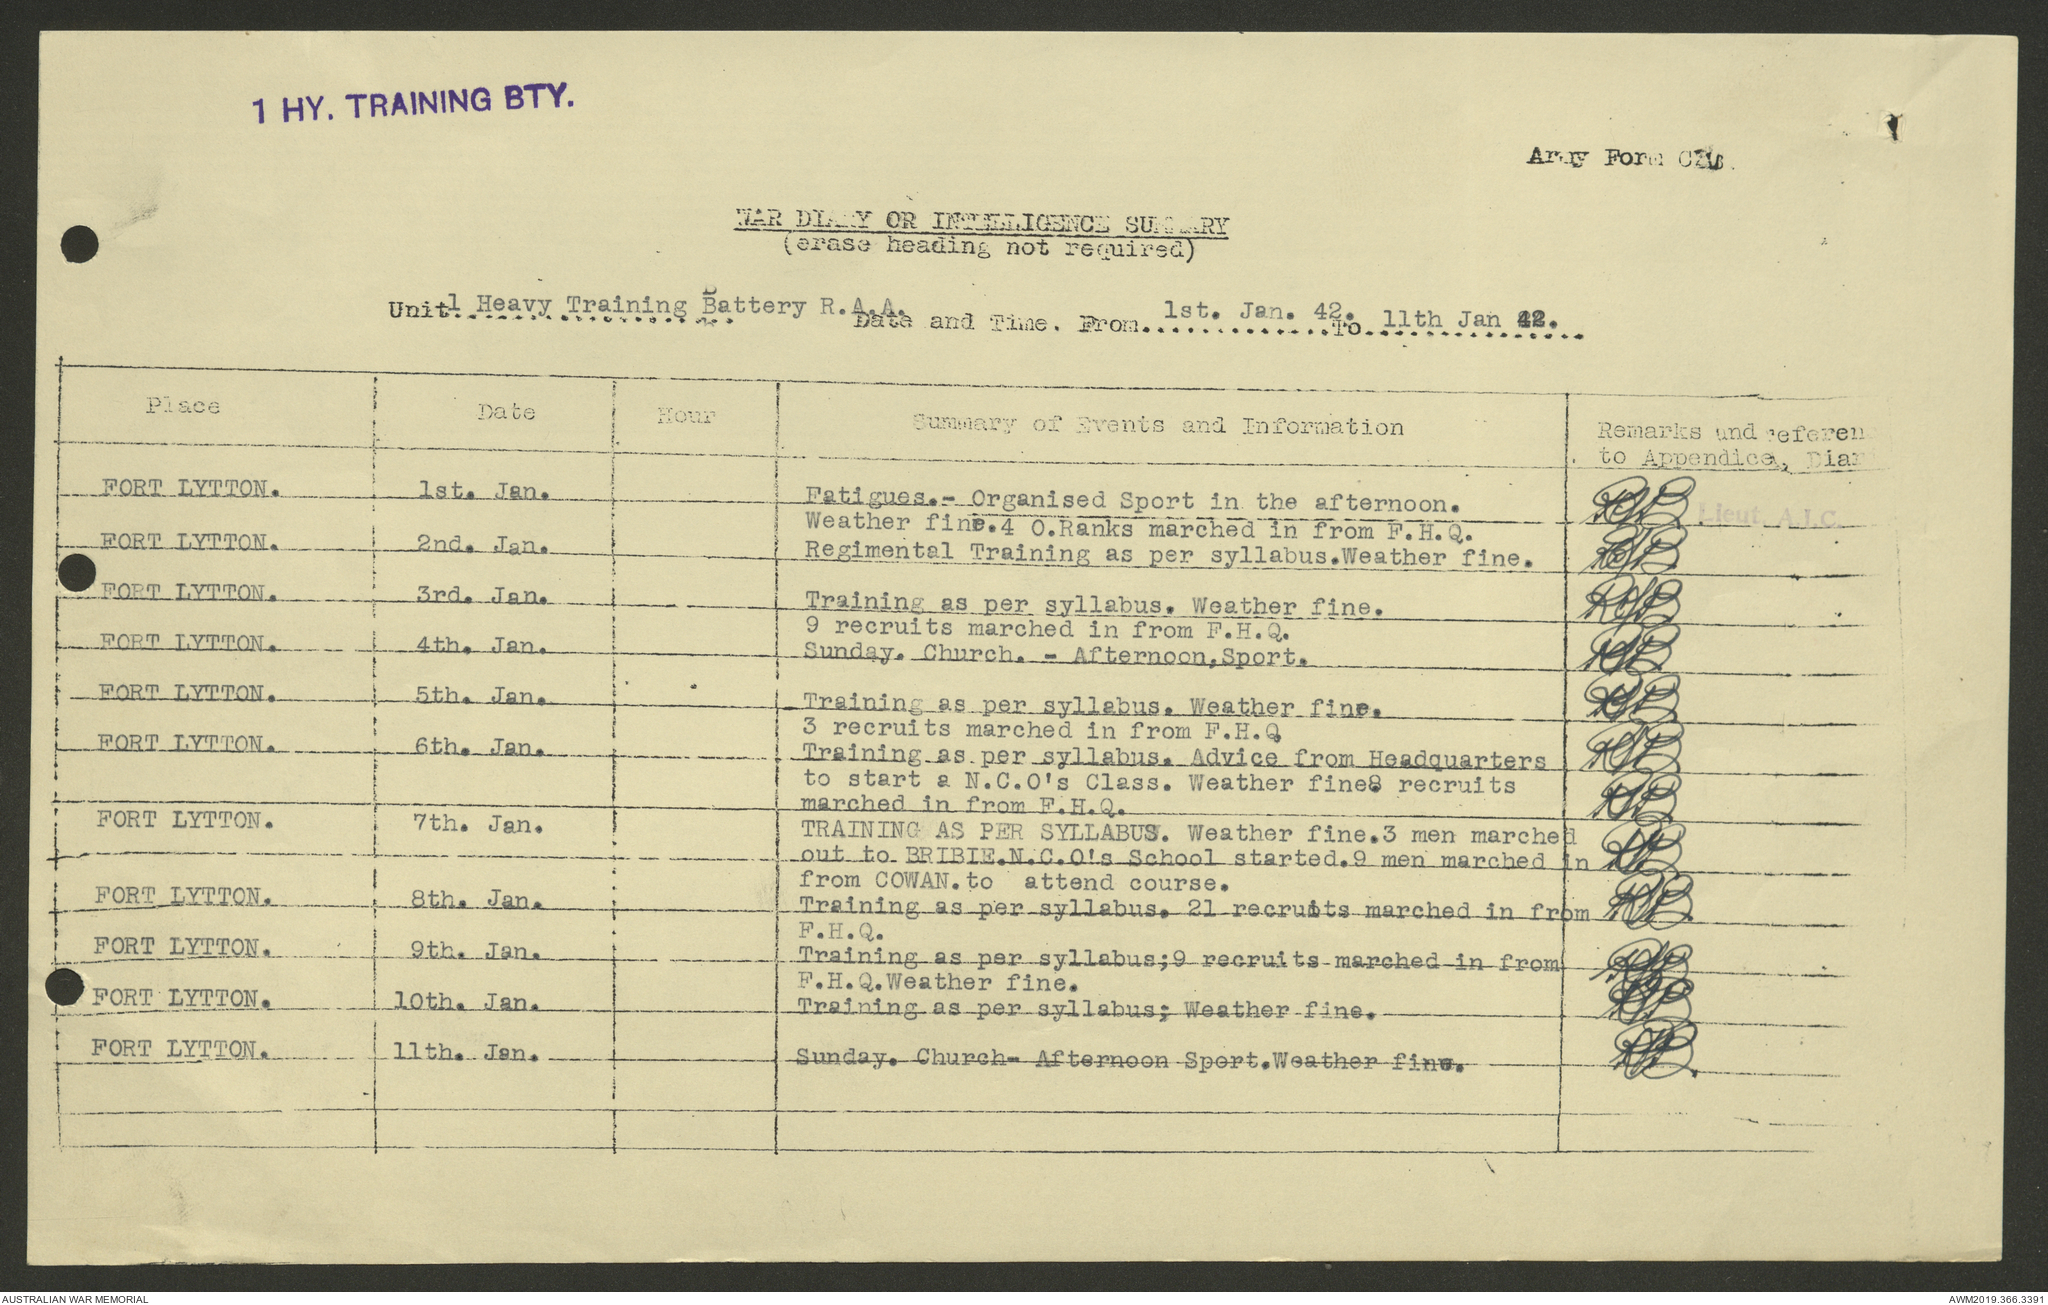 1 HY. TRAINING BTY.
Army Form
WAR DIARY OR INTELLIGENCE SUMMARY
(erase heading not required)
Unit 1 Heavy Training Battery R.A.A. Date and Time. From 1st. Jan. 42. To 11th Jan 42.
Place Date Hour Summary of Events and Information Remarks and referen
to Appendices, Diar
FORT LYTTON. 1st. Jan. Fatigues.- Organised Sport in the afternoon.
Weather fine.4 O.Ranks marched in from F.H.Q. Lieut. A.I.C.
FORT LYTTON. 2nd. Jan. Regimental Training as per syllabus.Weather fine.
FORT LYTTON. 3rd. Jan. Training as per syllabus. Weather fine.
9 recruits marched in from F.H.Q.
FORT LYTTON. 4th. Jan. Sunday. Church. - Afternoon,Sport.
FORT LYTTON. 5th. Jan. Training as per syllabus. Weather fine.
3 recruits marched in from F.H.Q
FORT LYTTON. 6th. Jan. Training as per syllabus. Advice from Headquarters
to start a N.C.O's Class. Weather fine8 recruits
marched in from F.H.Q.
FORT LYTTON. 7th. Jan. TRAINING AS PER SYLLABUS. Weather fine.3 men marched
out to BRIBIE.N.C.O's School started.9 men marched in
from COWAN.to attend course.
FORT LYTTON. 8th. Jan. Training as per syllabus. 21 recruits marched in from
F.H.Q.
FORT LYTTON. 9th. Jan. Training as per syllabus;9 recruits marched in from
F.H.Q.Weather fine.
FORT LYTTON. 10th. Jan. Training as per syllabus; Weather fine.
FORT LYTTON. 11th. Jan. Sunday. Church- Afternoon Sport.Weather fine.
AUSTRALIAN WAR MEMORIAL AWM2019.366.3391